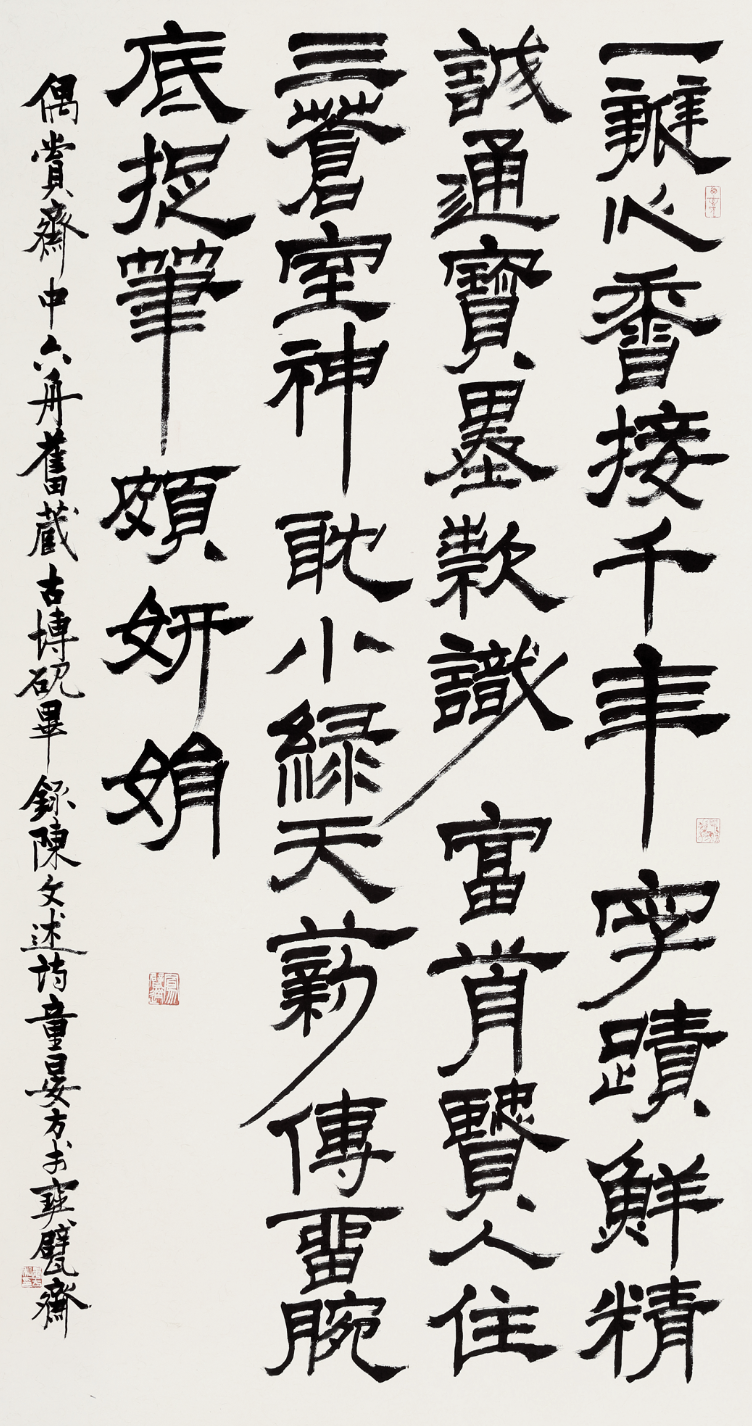 一瓣心香接千年字蹟鮮精
誠通寶墨款識富前賢人住
三蒼室神耽小綠天薪傳留腕
底捉筆頗妍娟
偶賞齋中六舟舊藏古塼硯畢錄陳文述詩童晏方書寶甓齋